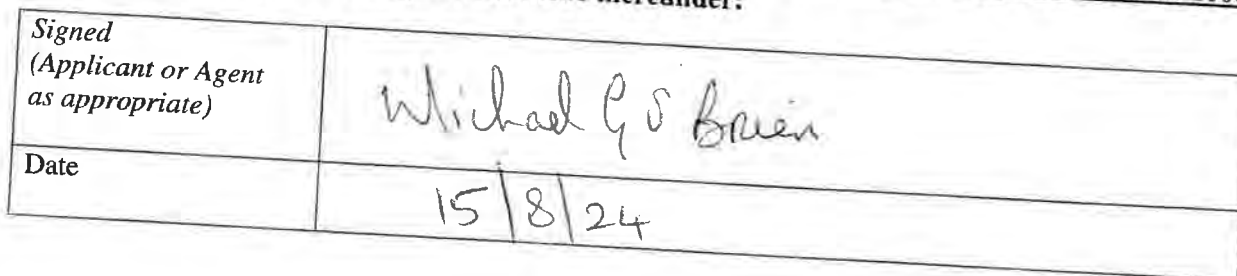 thereunder:
Signed
(Applicant or Agent
as appropriate)
Michael G O Brien
Date
15/8/24